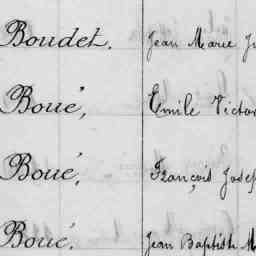 Boudet. Jean Marie
Boué, Emile Victor
Boué, François Josep
Boué. Jean Baptiste M